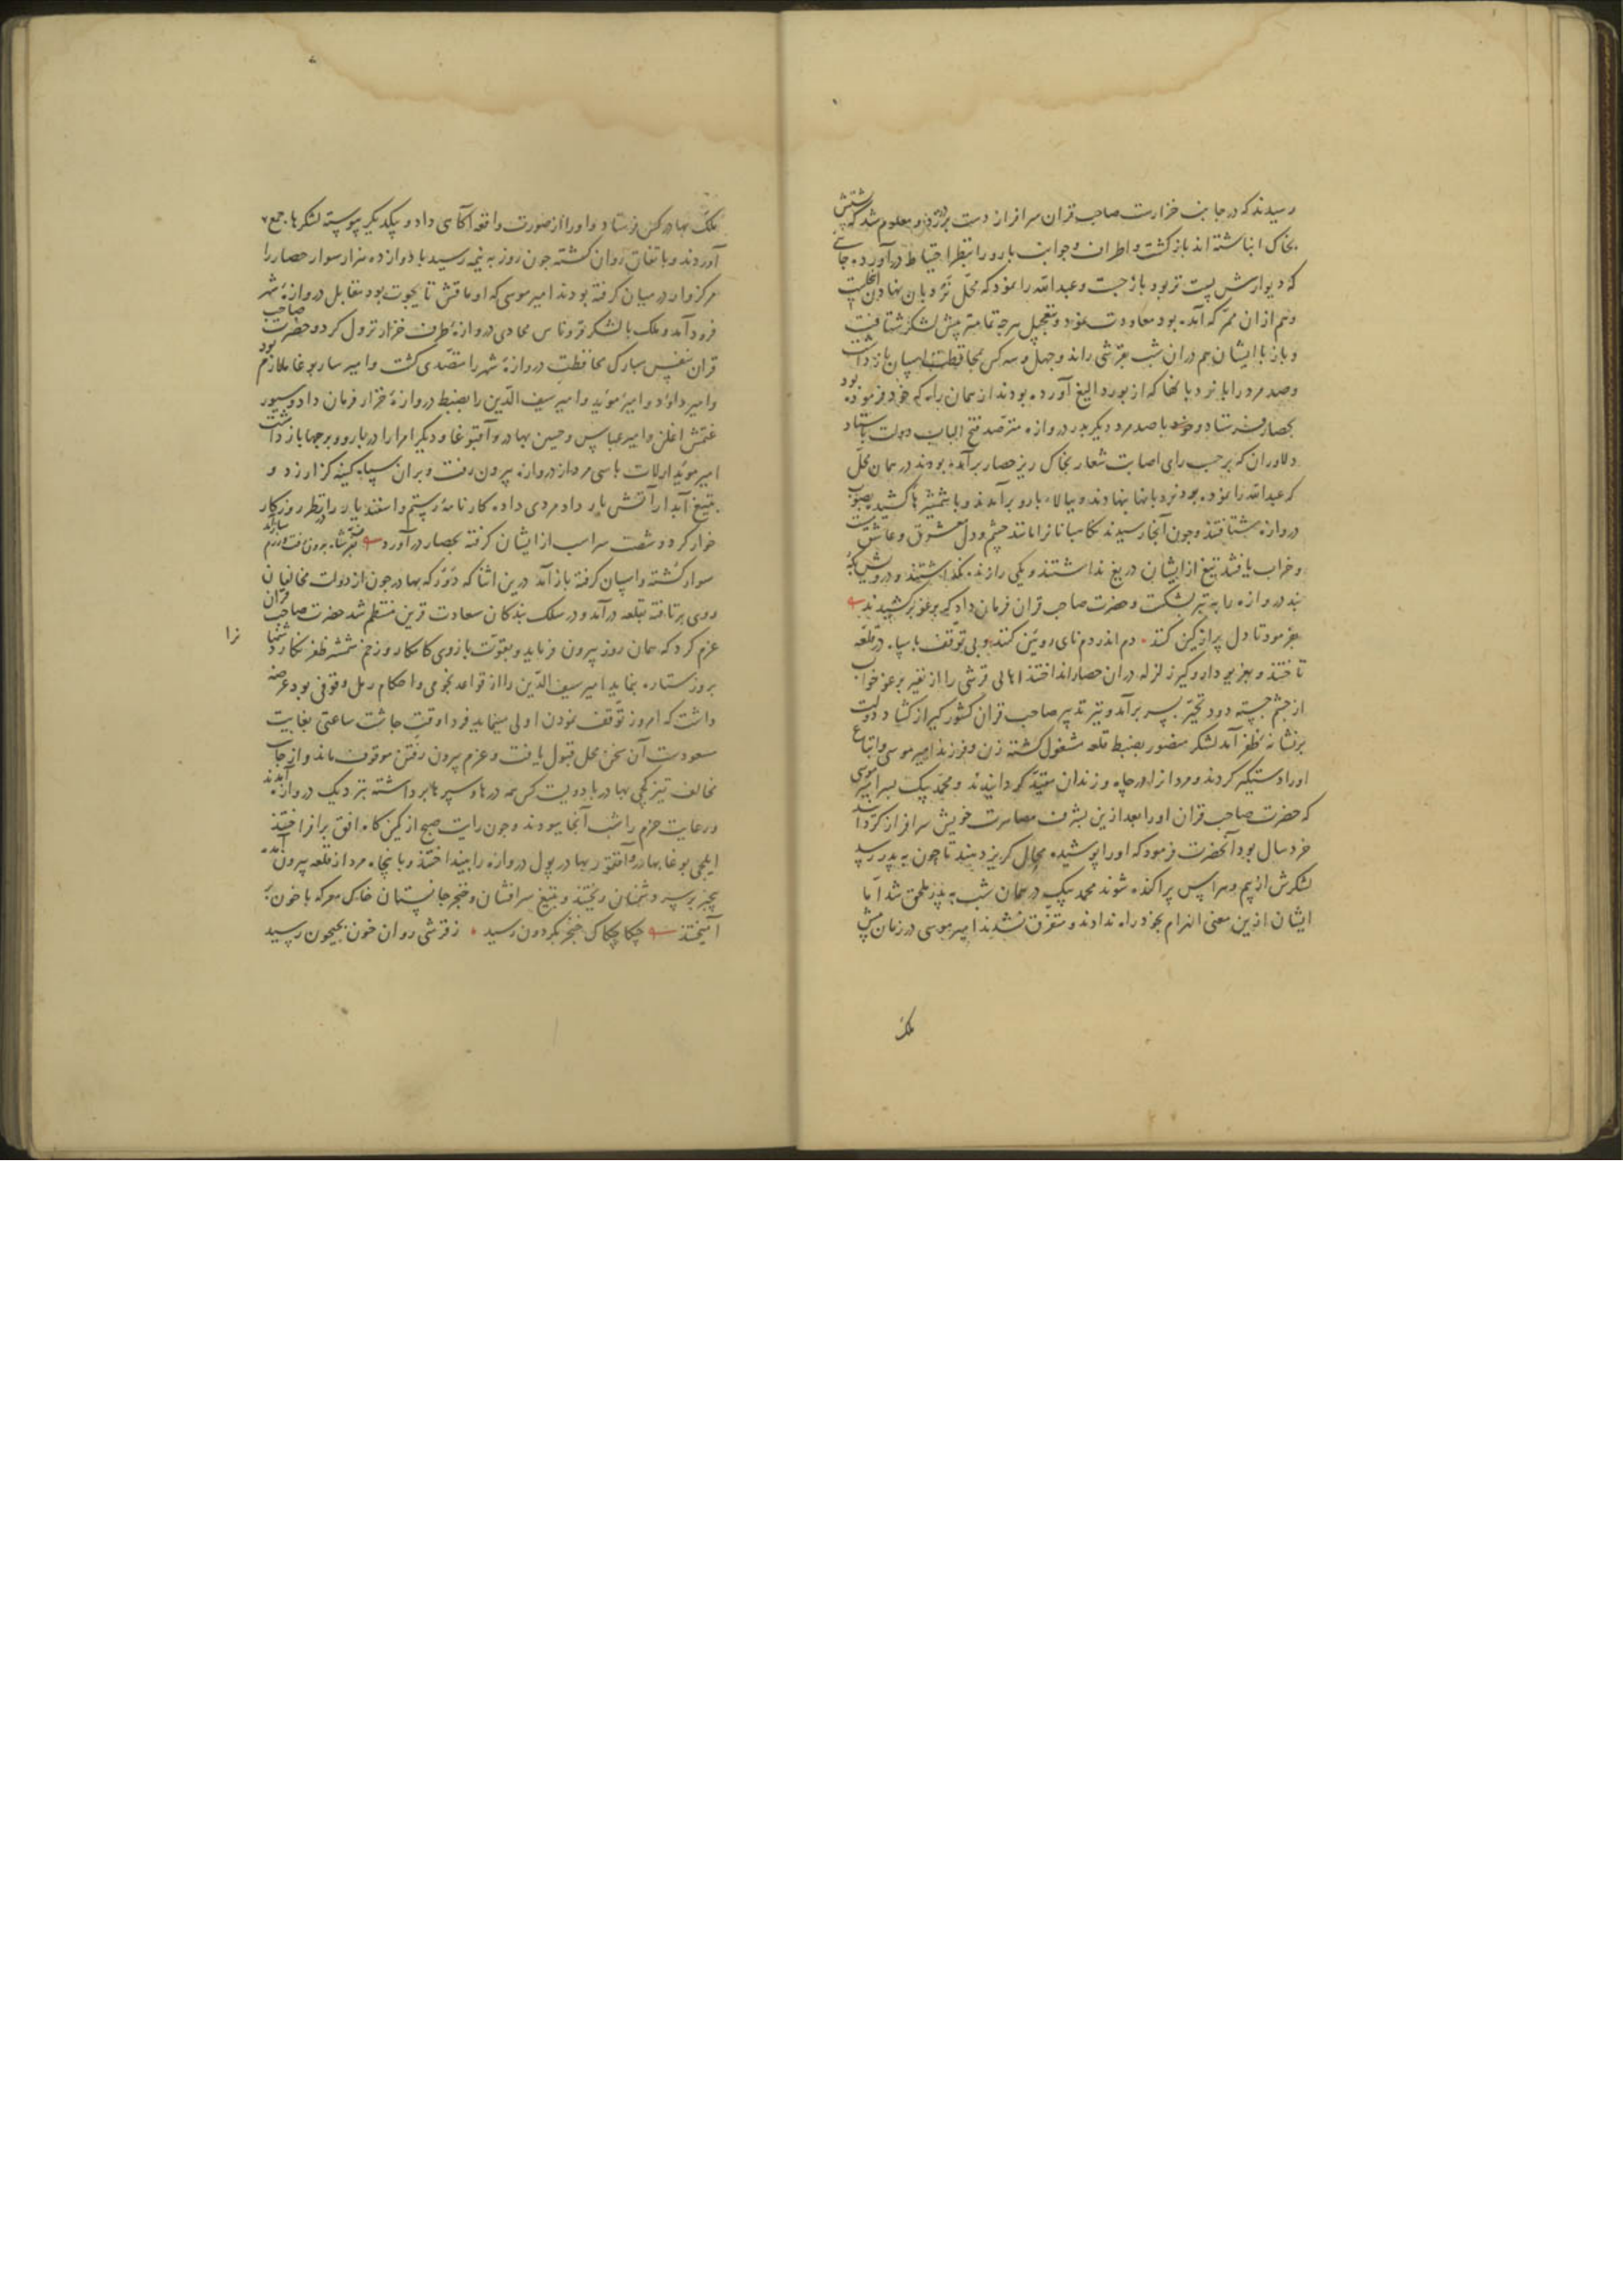 رسیدند که در جانب خزارست صاحب قران سرافراز دست بر در زد و معلوم شد که پشتش
بخاک انباشته اند بازگشت و اطراف و جوانب بارو را بنظر احتیاط درآورده جائی
که دیوارش پست تر بود باز جست و عبدالله را نمود که محل نردبان نهادن اینجاست
و هم از ان ممر که آمده بود معاودت نمود و بتعجیل هرچه تمامتر پیش لشکر شتافت
و باز با ایشان هم دران شب بقرشی راند و چهل و سه کس بمحافظت اسپان باز داشت
و صد مرد را با نردبانها که از بوردالیغ آورده بودند از همان راه که خود فرموده بود
بحصار فرستاد و خود با صد مرد دیگر بدر دروازه مترصد فتح الباب دولت باستاد
دلاوران که برحسب رای اصابت شعار بخاک ریز حصار برآمده بودند در همان محل
که عبدالله را نموده بود نردبانها بنهادند و ببالاء بارو برآمدند و با شمشیرها کشیده بصوب
دروازه شتافتند و چون آنجا رسیدند نگاهبانانرا مانند چشم و دل معشوق و عاشق مست
و خراب یافتند تیغ از ایشان دریغ نداشتند و یکی را زنده نگذاشتند و درویش بکه
بند دروازه را به تبر بشکست و حضرت صاحب قران فرمان داد که برغو برکشیدند
بفرمود تا دل پر از کین کنند ٠ دم اندر دم نای رویین کنند و بی توقف با سپاه در قلعه
تاختند و بغریو دار و گیر زلزله دران حصار انداختند اهالی قرشی را از نفیر برغو خواب
از چشم جسته دود تحیر بسر برآمد و تیر تدبیر صاحب قران کشورگیر از گشاد دولت
بر نشانه ظفر آمد لشکر منصور بضبط قلعه مشغول گشته زن و فرزند امیر موسی و اتباع
او را دستگیر کردند و مردانرا در چاه و زندان مقید گردانیدند و محمد بیک پسر امیر موسی
که حضرت صاحب قران او را بعد ازین بشرف مصاهرت خویش سرافراز گردانید
خرد سال بود آنحضرت فرمود که او را پوشیده مجال گریز دهند تا چون به پدر رسد
لشکرش از بیم و هراس پراکنده شوند محمد بیک در همان شب به پدر ملحق شد اما
ایشان ازین معنی انهزام بخود راه ندادند و متفرق نشدند امیر موسی در زمان پیش
ملک
ملک بهادر کس فرستاد و او را از صورت واقعه آگاهی داد و بیکدیگر پیوسته لشکرها جمع
آوردند و باتفاق روان گشته چون روز به نیمه رسید با دوازده هزار سوار حصار را
مرکزوار در میان گرفته بودند امیر موسی که اوماقش تایجوت بود مقابل دروازهٔ شهر
فرود آمد و ملک با لشکر قروناس محاذی دروازهٔ طرف خزار نزول کرد و حضرت صاحب
قران بنفس مبارک محافظت دروازهٔ شهر را متصدی گشت و امیر ساربوغا ملازم بود
و امیر داود و امیر موید و امیر سیف الدین را بضبط دروازهٔ خزار فرمان داد و سیور
غتمش اغلن و امیر عباس و حسین بهادر و آقبوغا و دیگر امرا را در بارو و برجها باز داشت
امیر موید ارلات با سی مرد از دروازه بیرون رفت و بران سپاه کینه گزار زد و
بتیغ آبدار آتش بار داد مردی داده کارنامهٔ رستم و اسفندیار را بنظر روزگار
خوار کرد و شصت سر اسب از ایشان گرفته بحصار درآورد
سوار گشته و اسپان گرفته باز آمد درین اثنا که دوزکه بهادر چون از دولت مخالفان
روی برتافته بقلعه درآمد و در سلک بندگان سعادت قرین منتظم شد حضرت صاحب قران
عزم کرد که همان روز بیرون فرماید و بقوت بازوی کامکار و زخم شمشیر ظفر نگار دشمنانرا
بروز ستاره بنماید امیر سیف الدین را از قواعد نجومی و احکام رمل وقوفی بود عرضه
داشت که امروز توقف نمودن اولی مینماید فردا وقت چاشت ساعتی بغایت
مسعودست آن سخن محل قبول یافت و عزم بیرون رفتن موقوف ماند و از جانب
مخالف تیزکچی بهادر با دویست کس همه درها و سپرها برداشته نزدیک دروازه آمدند
و رعایت حزم را شب آنجا ببودند و چون رایت صبح از کمین گاه افق برافراختند
ایلچی بوغا بهادر و آقتمور بهادر پول دروازه را بینداختند و با پنجاه مرد از قلعه بیرون آمده
بخیر بر سر دشمنان ریختند و بتیغ سرافشان و خنجر جانستان خاک معرکه با خون
آمیختند چکاچاک خنجر بگردون رسید ٠ ز قرشی روان خون بجیحون رسید